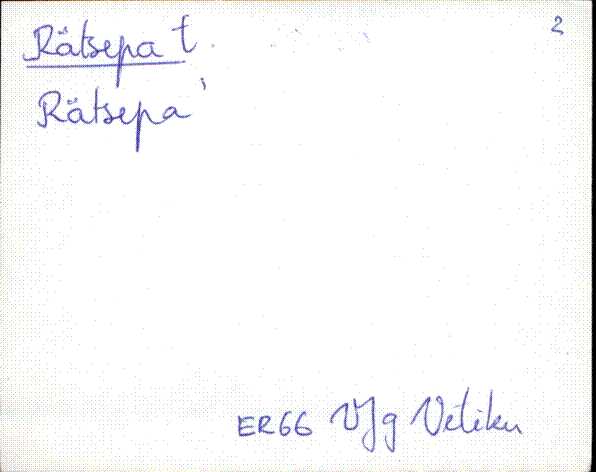 2
Rätsepa t.
Rätsepa'
ER66 VJg Vetiku